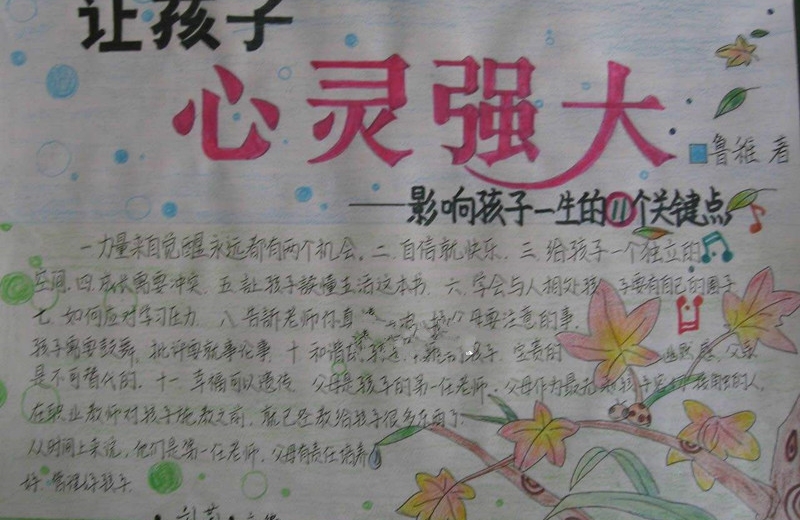 让孩子
心灵强大
鲁稚 著
——影响孩子一生的11个关键点
一力量来自觉醒永远都有两个机会.二.自信就快乐.三.给孩子一个独立的
空间.四.成长需要冲突.五.让孩子读懂生活这本书.六.学会与人相处孩子要有自己的圈子
七.如何应对学习压力.八.告诉老师你真 母要注意的事.
孩子需要鼓舞,批评要就事论事.十.和谐的 孩子.宝贵的 幽默感.父亲
是不可替代的.十一.幸福可以遗传.父母是孩子的第一任老师.父母作为最先 孩子 的人,
在职业教师对孩子施教之前,就已经教给孩子很多东西了.
从时间上来说,他们是第一任老师,父母有责任培养
好.管理好孩子.